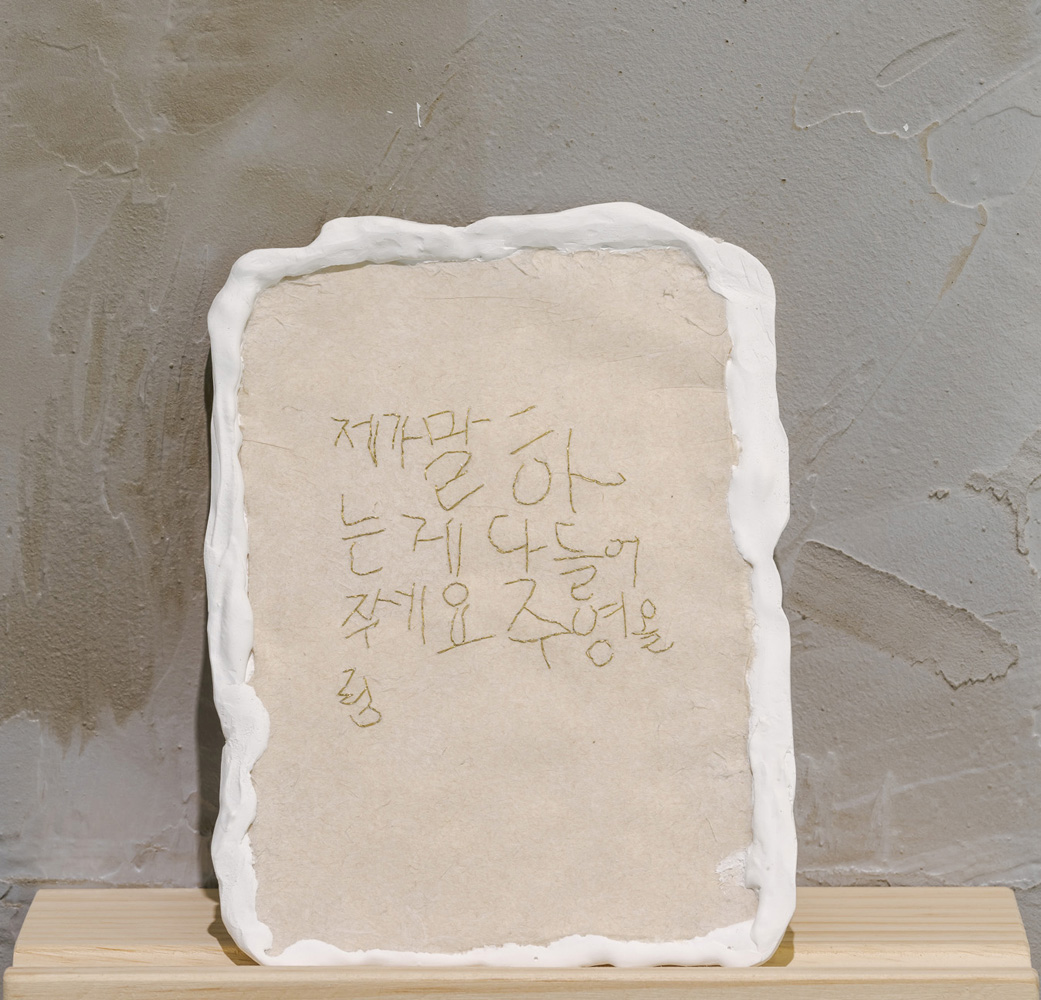 제가말 하
는게 다들어
주세요 주영올
림